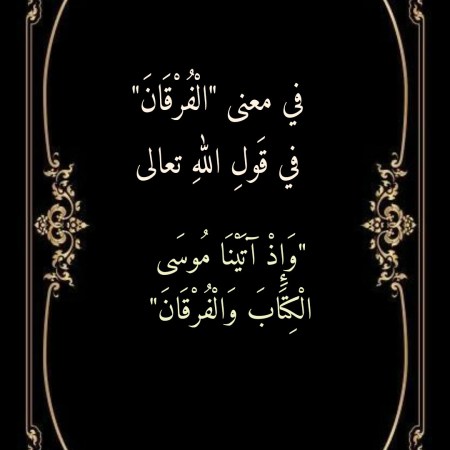 في معنى "الْفُرْقَانَ"
في قَولِ اللهِ تعالى
"وَإِذْ آتَيْنَا مُوسَى
الْكِتَابَ وَالْفُرْقَانَ"